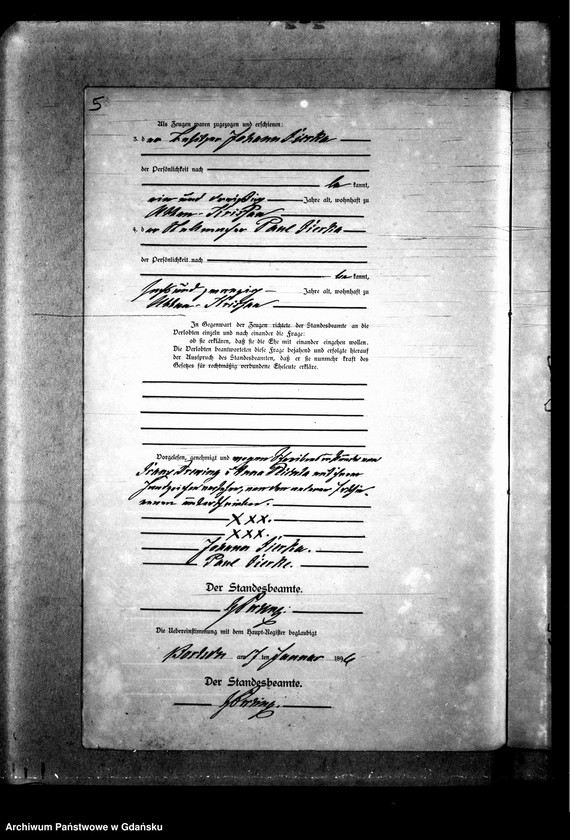 5
Als Zeugen waren zugezogen und erschienen:
3. der Besitzer Johann
der Persönlichkeit nach
be kannt,
ein und dreißig Jahre alt, wohnhaft zu
4. der Paul
der Persönlichkeit nach
be kannt,
sechs und zwanzig Jahre alt, wohnhaft zu
In Gegenwart der Zeugen richtete der Standesbeamte an die
Verlobten einzeln und nach einander die Frage:
ob sie erklären, daß sie die Ehe mit einander eingehen wollen.
Die Verlobten beantworteten diese Frage bejahend und erfolgte hierauf
der Ausspruch des Standesbeamten, daß er sie nunmehr kraft des
Gesetzes für rechtmäßig verbundene Eheleute erkläre.
Vorgelesen, genehmigt und wegen
Franz Anna mit ihren
Handzeichen versehen, von den anderen
unterschrieben.
XXX.
XXX.
Johann
Paul
Der Standesbeamte.
Die Uebereinstimmung mit dem Haupt-Register beglaubigt
am 7 ten Januar 1896
Der Standesbeamte.
Archiwum Państwowe w Gdańsku